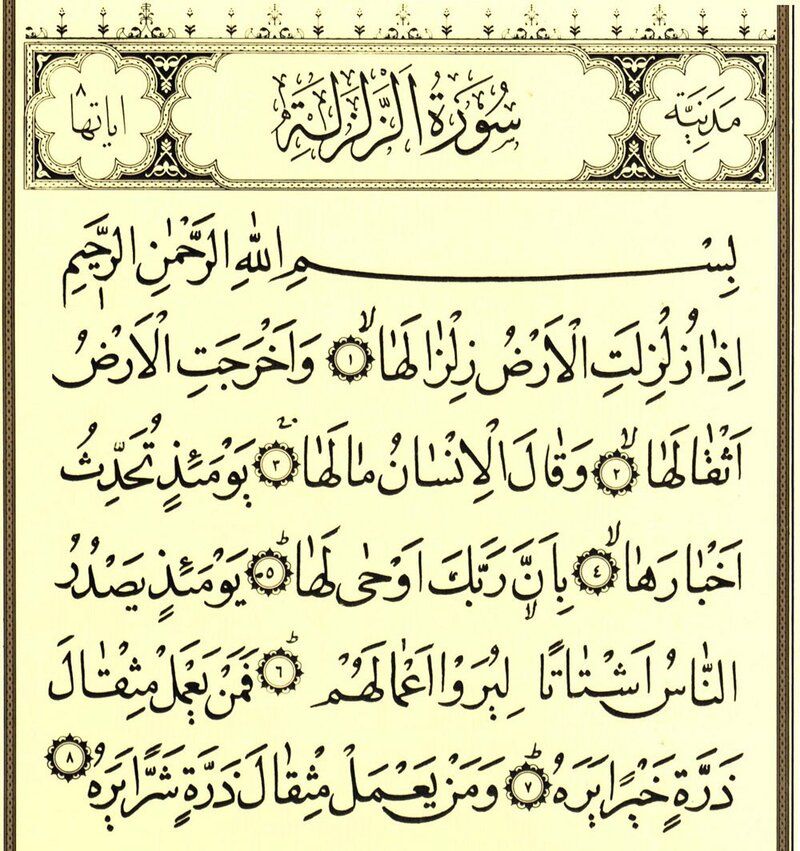 مَدَنِيَّة سُورَةُ الزَّلْزَلَةِ اياتها ٨
بِسْمِ اللّٰهِ الرَّحْمٰنِ الرَّحِيمِ
اِذَا زُلْزِلَتِ الْاَرْضُ زِلْزَالَهَاۙ ﴿١﴾ وَاَخْرَجَتِ الْاَرْضُ
اَثْقَالَهَاۙ ﴿٢﴾ وَقَالَ الْاِنْسَانُ مَا لَهَاۚ ﴿٣﴾ يَوْمَئِذٍ تُحَدِّثُ
اَخْبَارَهَاۙ ﴿٤﴾ بِاَنَّ رَبَّكَ اَوْحٰى لَهَاۜ ﴿٥﴾ يَوْمَئِذٍ يَصْدُرُ
النَّاسُ اَشْتَاتًاۙ لِيُرَوْا اَعْمَالَهُمْۜ ﴿٦﴾ فَمَنْ يَعْمَلْ مِثْقَالَ
ذَرَّةٍ خَيْرًا يَرَهُۜ ﴿٧﴾ وَمَنْ يَعْمَلْ مِثْقَالَ ذَرَّةٍ شَرًّا يَرَهُ ﴿٨﴾